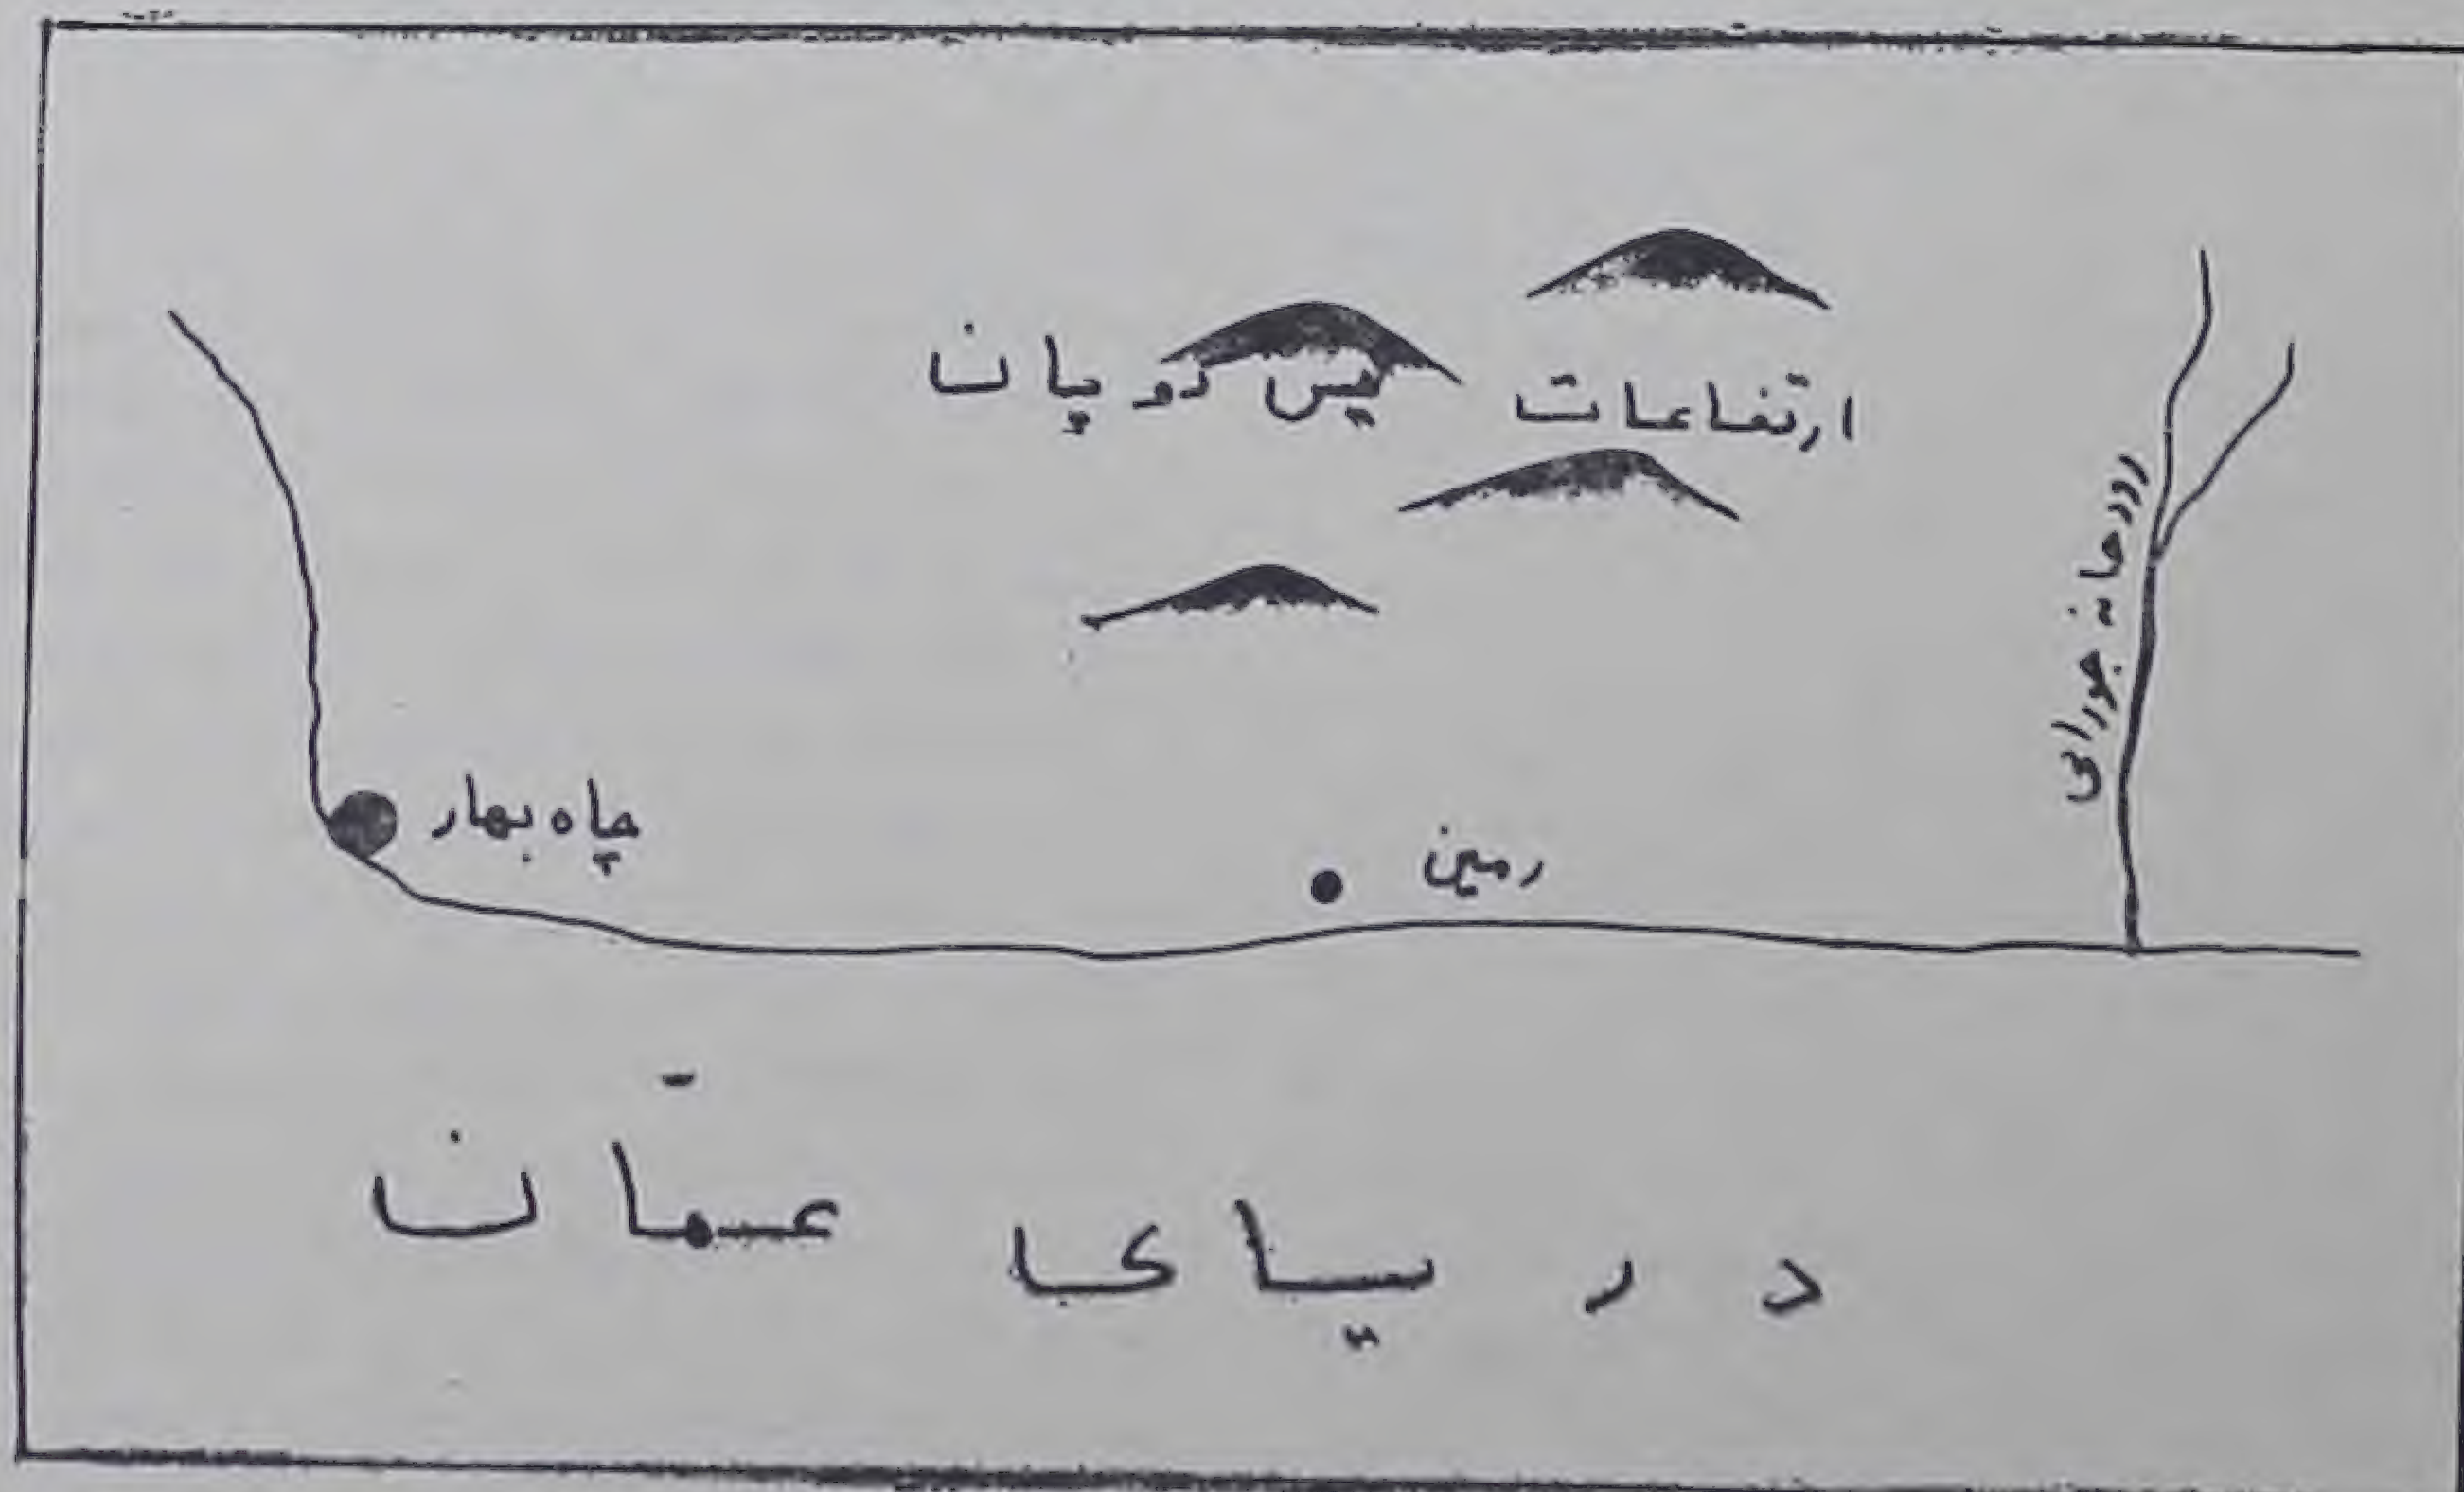 ارتفاعات پس دوپان
رودخانه جورانی
چاه بهار
رمین
دریای عمّان